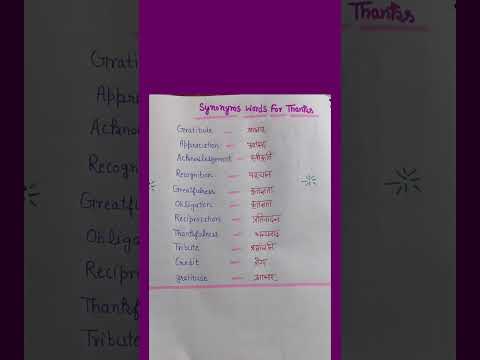 Synonyms Words For Thanks
Gratitute — आभार
Appreciation — प्रशंसा
Acknowledgement — स्वीकृति
Recognition — पहचान
Greatfulness — कृतज्ञता
Obligation — कृतज्ञता
Reciprocation — प्रतिदान
Thankfulness — धन्यवाद
Tribute — श्रद्धांजलि
Credit — श्रेय
gratitude — आभार
Thanks
Grati
Appre
Acknow
Recogn
Greatfu
Obliga
Recipr
Thankf
Tribute